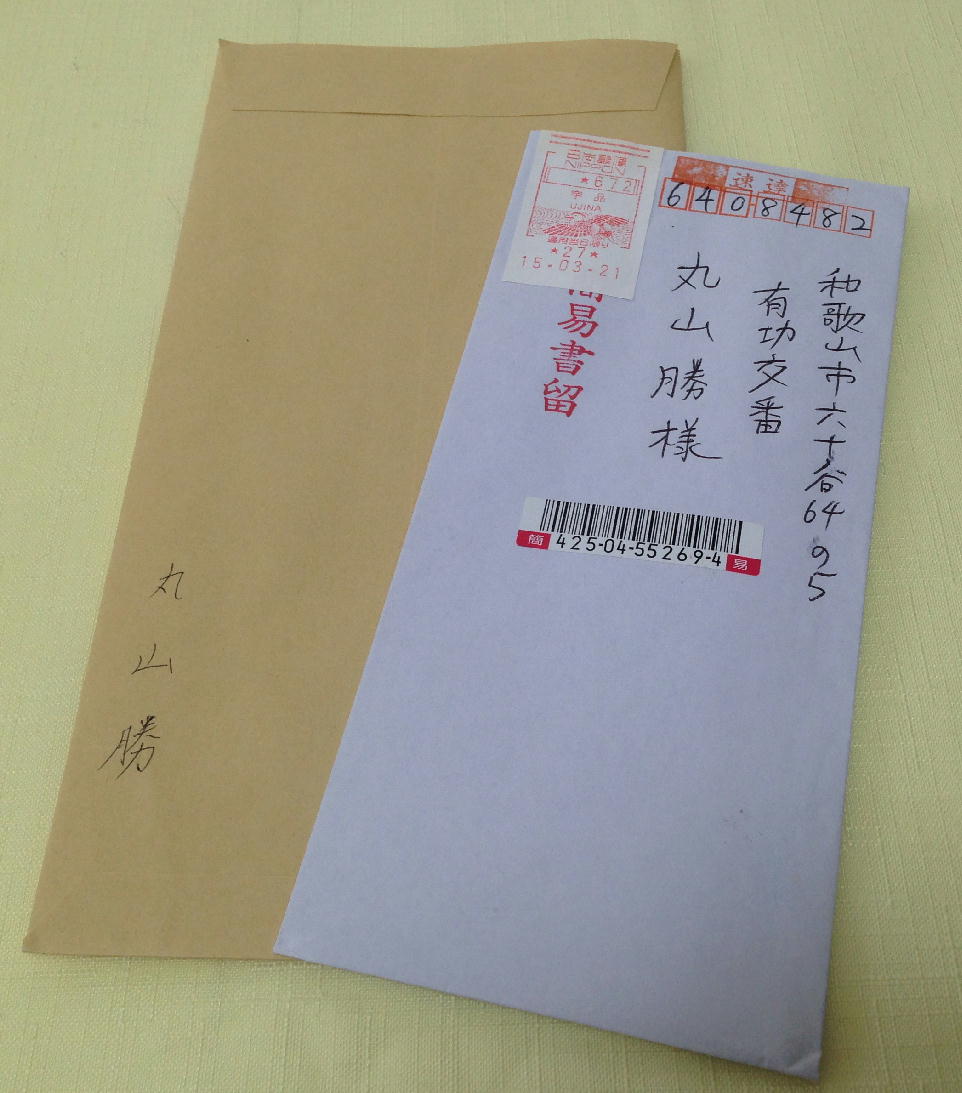 日本郵便
NIPPON
★672
宇品
UJINA
★27★
15-03-21
速達
6408482
和歌山市六十谷64の5
有功交番
丸山勝様
簡易書留
簡 425-04-55269-4 易
丸山勝